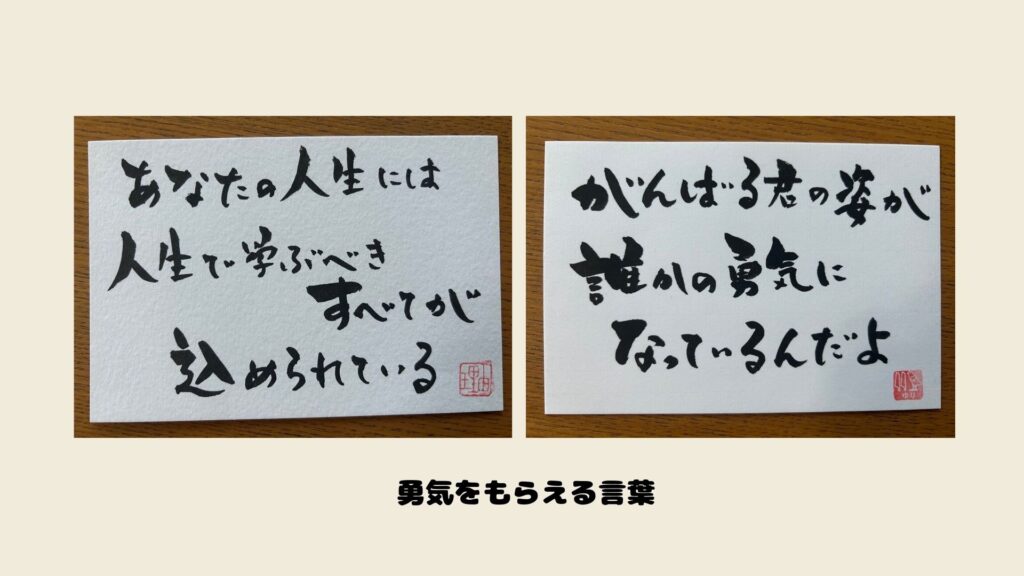 あなたの人生には
人生で学ぶべき
すべてが
込められている
がんばる君の姿が
誰かの勇気に
なっているんだよ
勇気をもらえる言葉